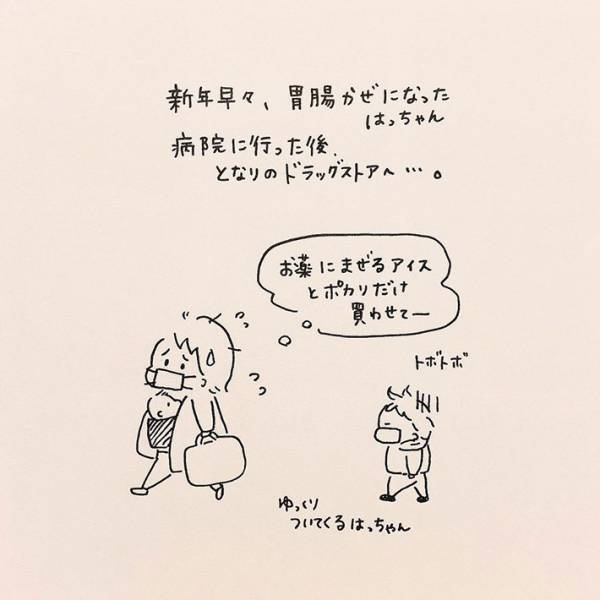 新年早々、胃腸かぜになった
はっちゃん
病院に行った後、
となりのドラッグストアへ…。
お薬にまぜるアイス
とポカリだけ
買わせてー
トボトボ
ゆっくり
ついてくるはっちゃん